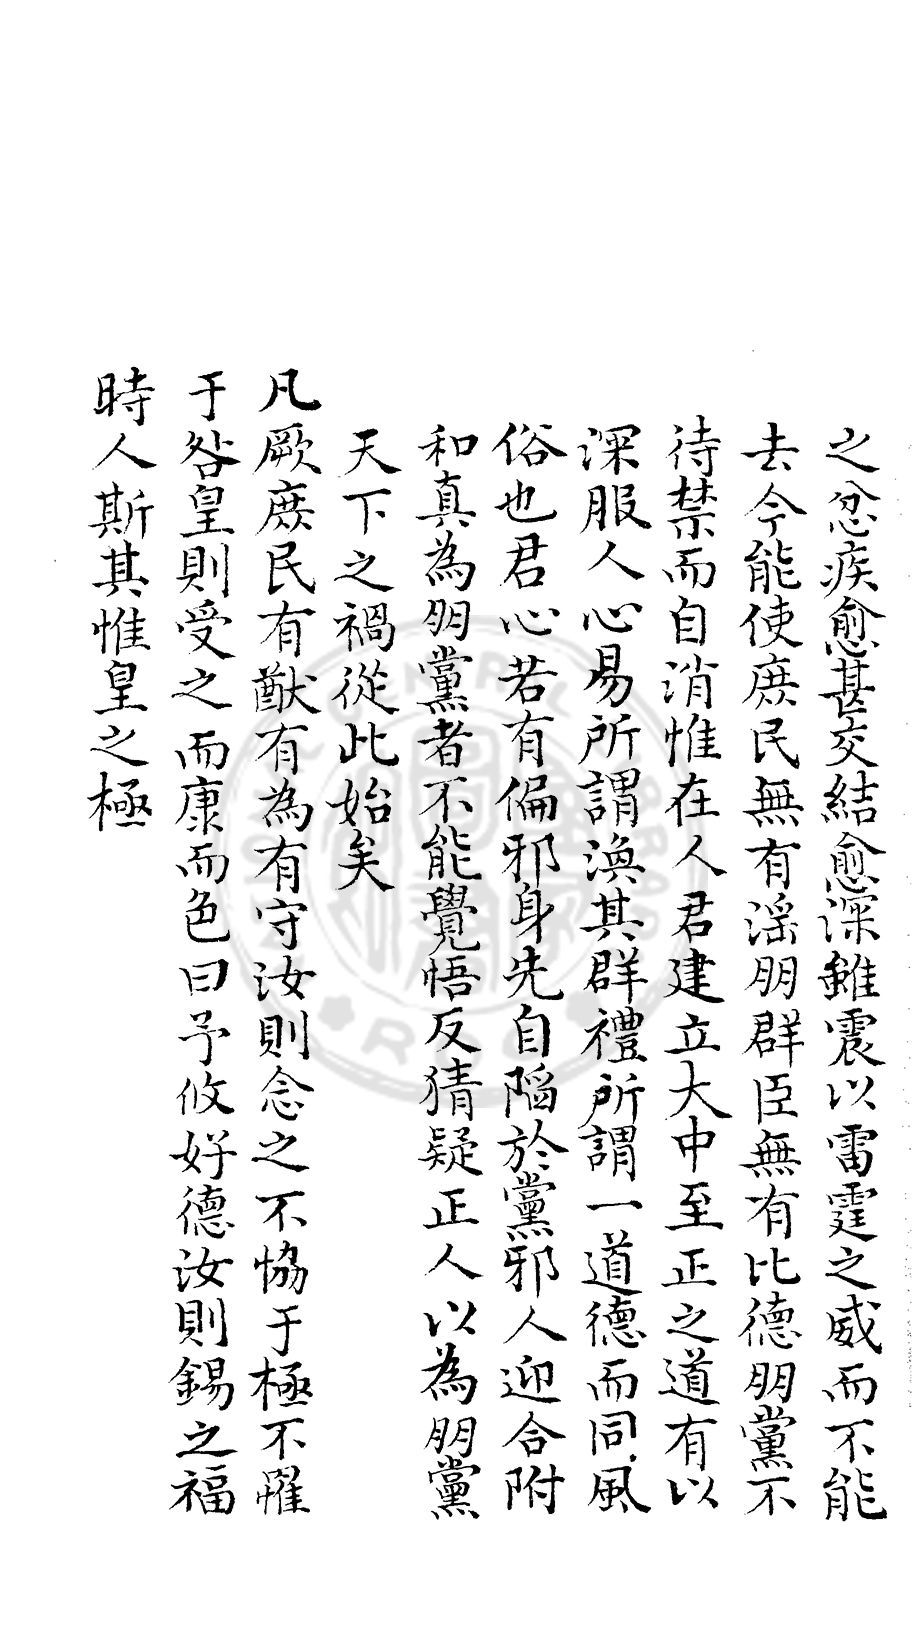 之忿疾愈甚交結愈深雖震以雷霆之威而不能
去今能使庶民無有淫朋群臣無有比德朋黨不
待禁而自消惟在人君建立大中至正之道有以
深服人心易所謂渙其群禮所謂一道德而同風
俗也君心若有偏邪身先自陷於黨邪人迎合附
和真為朋黨者不能覺悟反猜疑正人以為朋黨
天下之禍從此始矣
凡厥庶民有猷有為有守汝則念之不恊于極不罹
于咎皇則受之而康而色曰予攸好德汝則錫之福
時人斯其惟皇之極